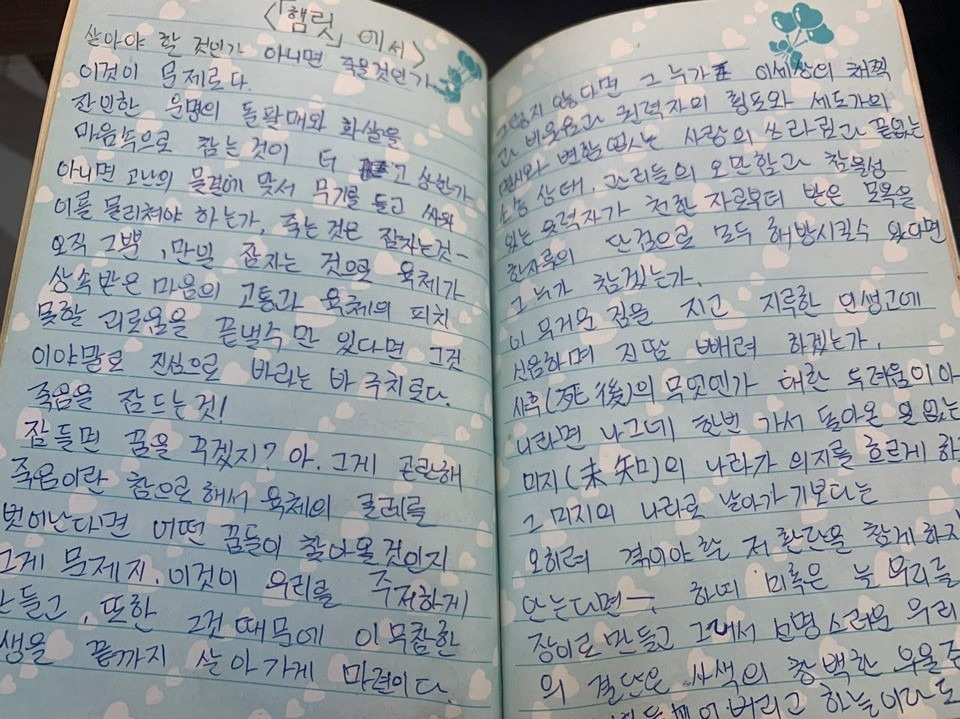 <「햄릿」에서>
살아야 할 것인가 아니면 죽을것인가
이것이 문제로다.
잔인한 운명의 돌팔매와 화살을
마음속으로 참는 것이 더 고상한가
아니면 고난의 물결에 맞서 무기를 들고 싸워
이를 물리쳐야 하는가, 죽는 것은 잠자는것-
오직 그뿐, 만일 잠자는 것으로 육체가
상속받은 마음의 고통과 육체의 피치
못할 괴로움을 끝낼수만 있다면 그것
이야말로 진심으로 바라는 바 극치로다.
죽음을 잠드는 것!
잠들면 꿈을 꾸겠지? 아. 그게 곤란해
죽음이란 잠으로 해서 육체의 굴레를
벗어난다면 어떤 꿈들이 찾아올것인지
그게 문제지. 이것이 우리를 주저하게
만들고, 또한 그것 때문에 이 무참한
생을 끝까지 살아가게 마련이다.
그렇지 않다면 그 누가 이세상의 채찍
과 비웃음과 권력자의 횡포와 세도가의
변함 없는 사랑의 쓰라림과 끝없는
소송 상태, 관리들의 오만함과 참을성
있는 유력자가 천한 자로부터 받은 모욕을
한자루의 단검으로 모두 해방시킬수 있다면
그 누가 참겠는가.
이 무거운 짐을 지고 지루한 인생고에
신음하며 진땀 빼려 하겠는가.
사후(死後)의 무엇엔가 대한 두려움이 아
니라면 나그네 한번 가서 돌아온 일 없는
미지(未知)의 나라가 의지를 흐르게 하
그 미지의 나라로 날아가기보다는
오히려 겪어야 할 저 환난을 참게 하지
않는다면-. 하여 미혹은 늘 우리를
장이로 만들고 그래서 선명스러운 우리
의 결단은 사색의 창백한 우울증
버리고 하늘이라도